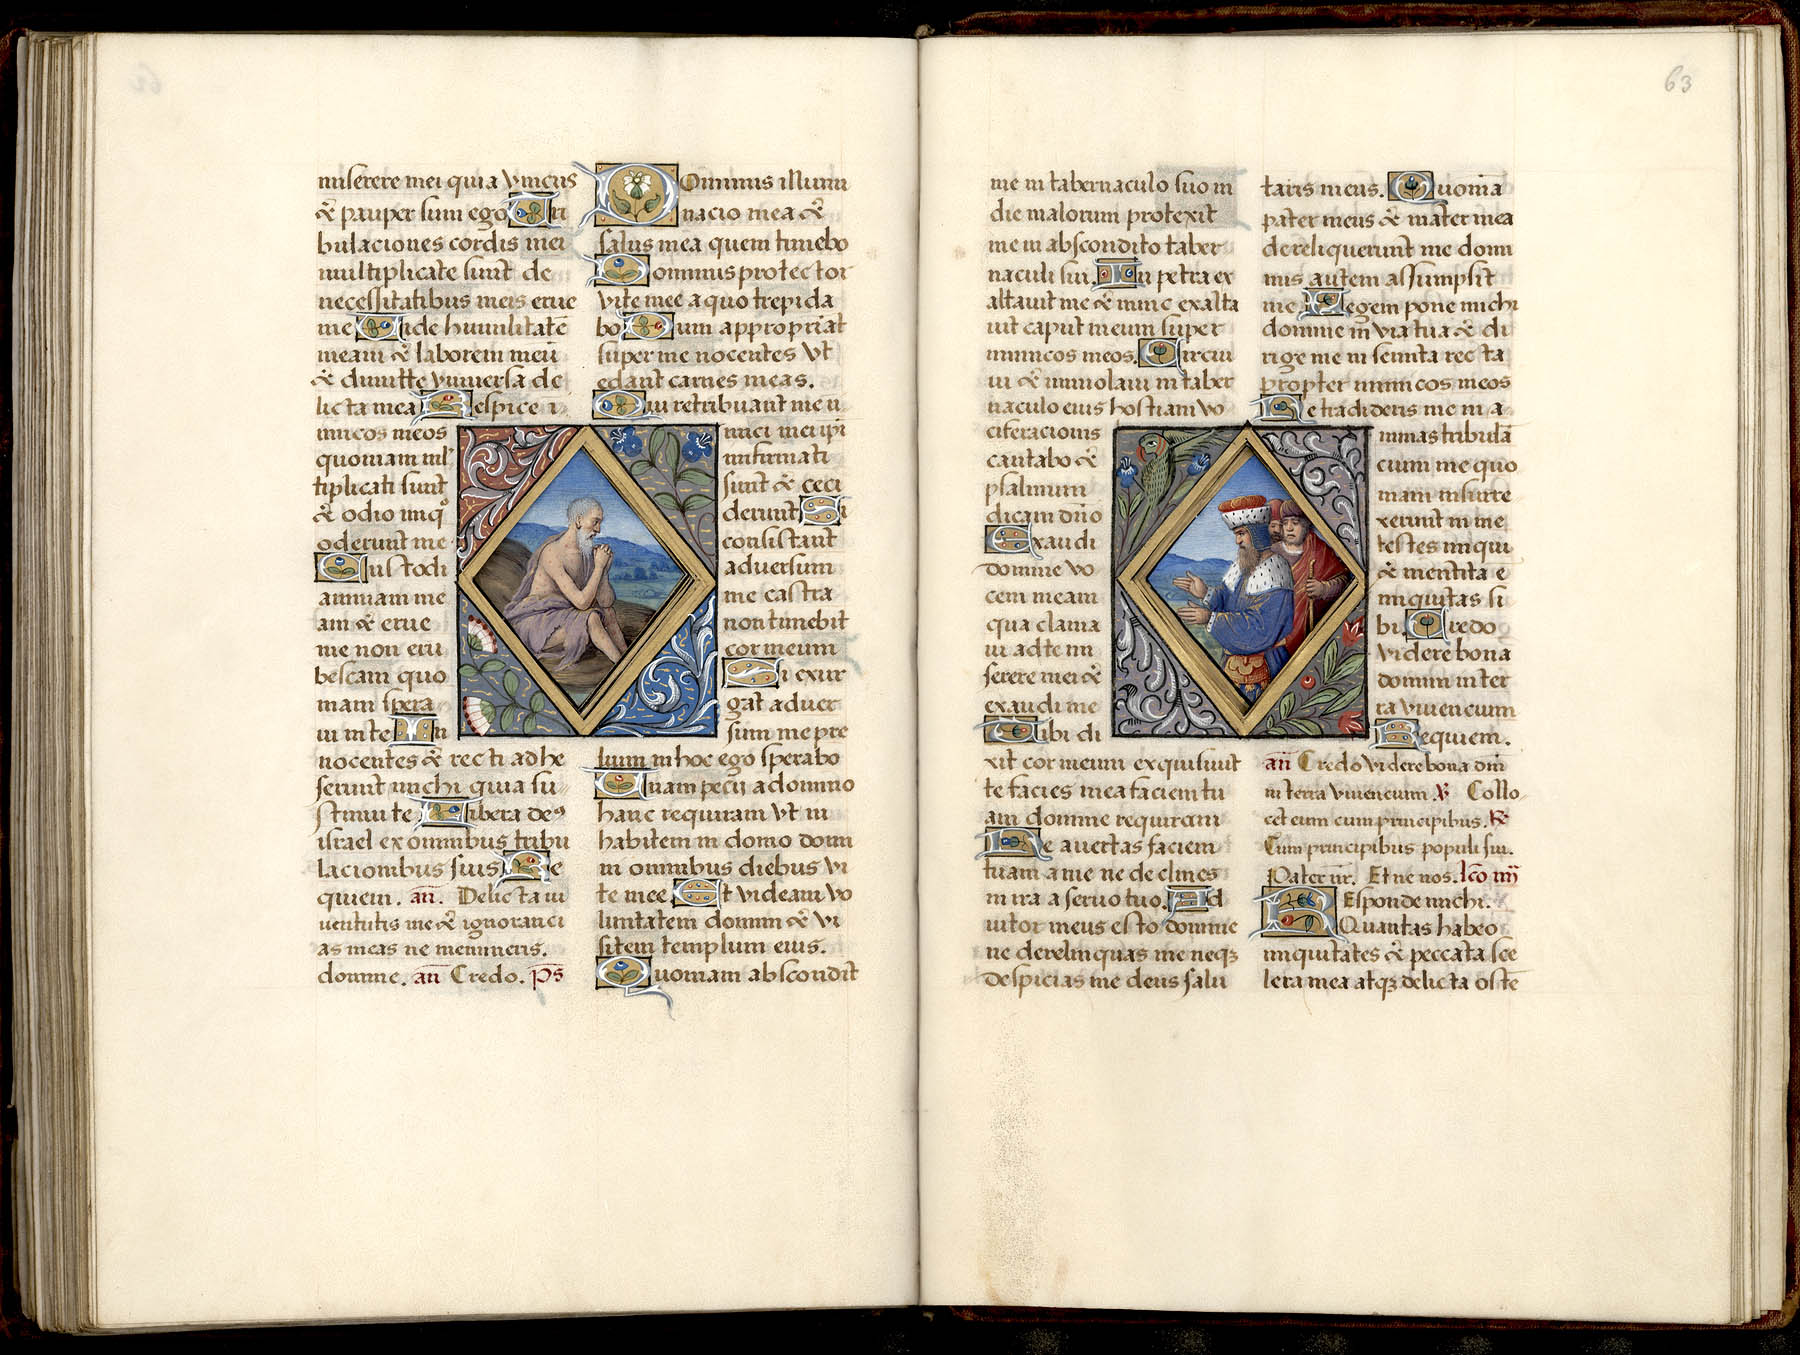 miserere mei quia vnicus
& pauper sum ego Tri
bulaciones cordis mei
multiplicate sunt de
necessitatibus meis erue
me Uide humilitatē
meam & laborem meū
& dimitte vniuersa de
licta mea Respice i
nimicos meos
quoniam mul
tiplicati sunt
& odio iniq̊
oderunt me
Custodi
animam me
am & erue
me non eru
bescam quo
niam spera
ui in te In
nocentes & recti adhe
serunt michi quia su
stinui te Libera deꝰ
israel ex omnibus tribu
lacionibus suis Re
quiem. añ. Delicta iu
uentutis mee & ignoranci
as meas ne memineris.
domine. añ Credo. p̄s
Dominus illumi
nacio mea &
salus mea quem timebo
Dominus protector
vite mee a quo trepida
bo Dum appropriat
super me nocentes vt
edant carnes meas.
Qui retribuant me ni
mici mei ipi
infirmati
sunt & ceci
derunt Si
consistant
aduersum
me castra
non timebit
cor meum
Si exur
gat aduer
sum me pre
lium in hoc ego sperabo
Unam pecij a domino
hanc requiram vt in
habitem in domo domi
ni omnibus diebus vi
te mee Et videam vo
luntatem domini & vi
sitem templum eius.
Quoniam abscondit
63
me in tabernaculo suo in
die malorum protexit
me in abscondito taber
naculi sui. In petra ex
altauit me & nunc exalta
uit caput meum super
inimicos meos. Circui
ui & immolaui in taber
naculo eius hostiam vo
ciferacionis
cantabo &
psalmum
dicam dño
Exaudi
domine vo
cem meam
qua clama
ui ad te mi
serere mei &
exaudi me
Tibi di
xit cor meum exquisiuit
te facies mea faciem tu
am domine requiram
Ne auertas faciem
tuam a me ne declines
in ira a seruo tuo. Ad
iutor meus esto domine
ne derelinquas me neqꝫ
despicias me deus salu
taris meus. Quoniā
pater meus & mater mea
dereliquerunt me domi
nus autem assumpsit
me Legem pone michi
domine in via tua & di
rige me in semita recta
propter inimicos meos
Ne tradideris me in a
nimas tribulā
cium me quo
niam insurre
xerunt in me
testes iniqui
& mentita e
iniquitas si
bi. Credo
videre bona
domini in ter
ra viuencium
Requiem.
añ Credo videre bona dñi
in terra viuencium ℣ Collo
cet eum cum principibus. ℟
Cum principibus populi sui.
Pater nr̄. Et ne nos. lc̄o iiij
Responde michi.
Quantas habeo
iniquitates & peccata sce
lera mea atqꝫ delicta ostē